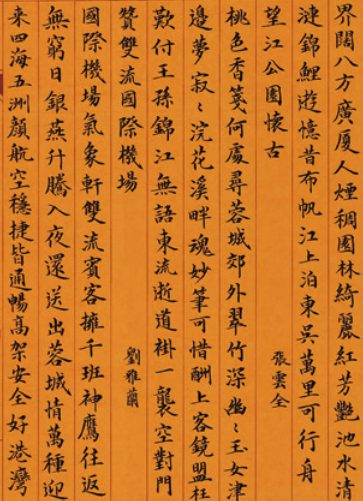 界闊八方廣厦人煙稠園林綺麗紅芳艷池水清
漣錦鯉遊憶昔布帆江上泊東吳萬里可行舟
望江公園懷古 張雲全
桃色香箋何處尋蓉城郊外翠竹深幽〻玉女津
邊夢寂〻浣花溪畔魂妙筆可惜酬上客鏡盟枉
歎付王孫錦江無語東流逝道褂一襲空對門
贊雙流國際機場 劉雅蘭
國際機場氣象軒雙流賓客擁千班神鷹往返
無窮日銀燕升騰入夜還送出蓉城情萬種迎
来四海五洲顏航空穩捷皆通暢高架安全好港灣